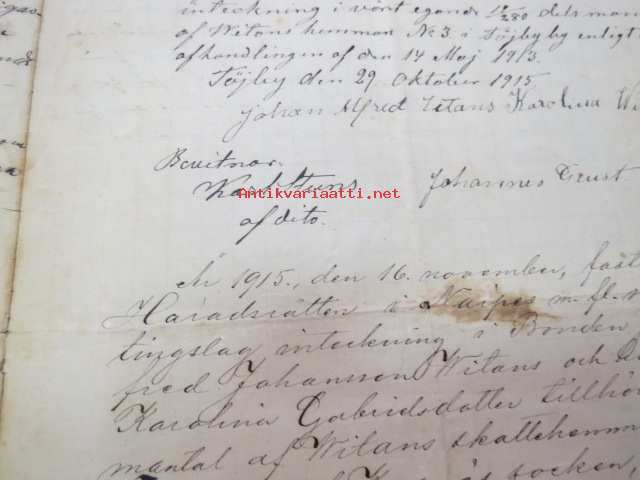 inteckning i vårt egande 17/280 dels man
af Witans hemman No 3 i Töjby by enligt
afhandlingen af den 14 Maj 1913.
Töjby den 29 Oktober 1915.
Johan Alfred Witans Karolina Wi
Bevitnar.
Karl Stuns Johannes Trust
Antikvariaatti.net
af dito.
År 1915, den 16. november, fäst
Häradsrätten i Närpes m. fl.
tingslag inteckning i Bonden
fred Johansson Witans och
Karolina Gabrielsdotter tillhör
mantal af Witans skattehemm
socken,